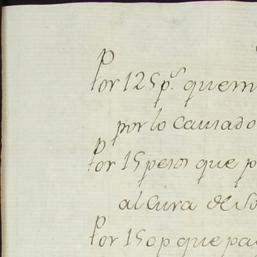 Por 125 p.s quem
por lo causado
Por 15 pesos que p
al Cura de So
Por 150 p que pa